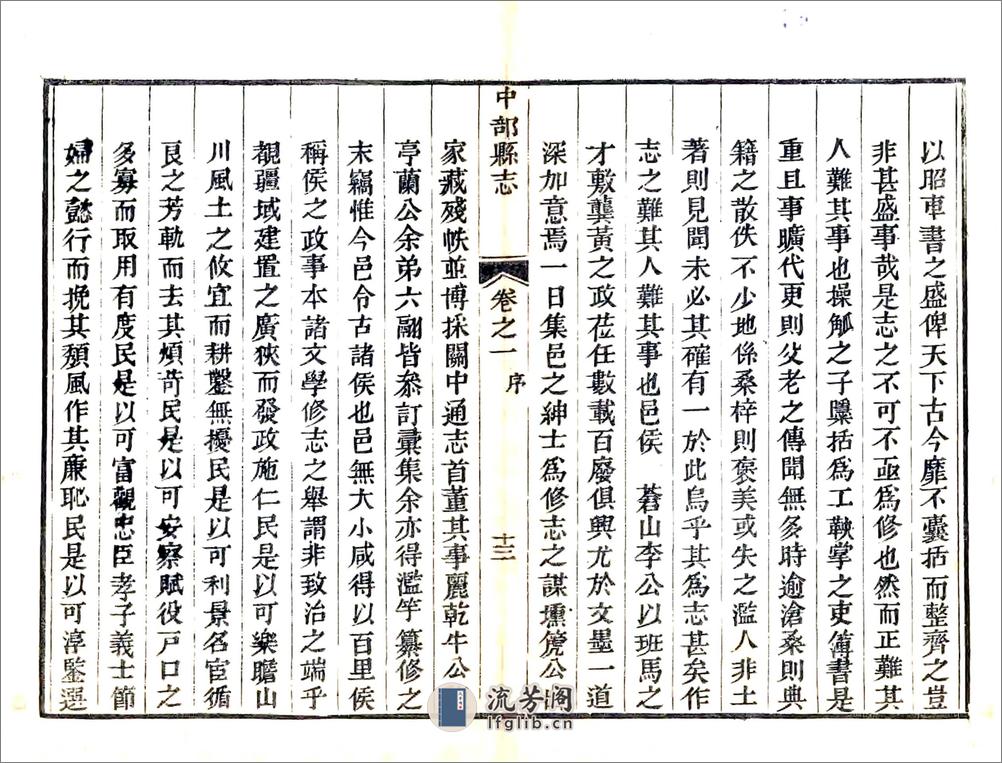 以昭車書之盛俾天下古今靡不囊括而整齊之豈
非甚盛事哉是志之不可不亟爲修也然而正難其
人難其事也操觚之子檃括爲工鞅掌之吏簿書是
重且事曠代更則父老之傳聞無多時逾滄桑則典
籍之散佚不少地係桑梓則褒美或失之濫人非土
著則見聞未必其確有一於此烏乎其爲志甚矣作
志之難其人難其事也邑侯 蒼山李公以班馬之
才敷龔黃之政莅任數載百廢俱興尤於文墨一道
深加意焉一日集邑之紳士爲修志之謀壎箎公出
中部縣志 卷之一 序 十三
家藏殘帙並博採關中通志首董其事麗乾牛公
亭蘭公余弟六翮皆叅訂彙集余亦得濫竽纂修之
末竊惟今邑令古諸侯也邑無大小咸得以百里侯
稱侯之政事本諸文學修志之舉謂非致治之端乎
覩疆域建置之廣狹而發政施仁民是以可樂瞻山
川風土之攸宜而耕鑿無擾民是以可利景名宦循
良之芳軌而去其煩苛民是以可安察賦役戸口之
多寡而取用有度民是以可富觀忠臣孝子義士節
婦之懿行而挽其頽風作其廉恥民是以可淳鑒選
流芳閣
lfglib.cn